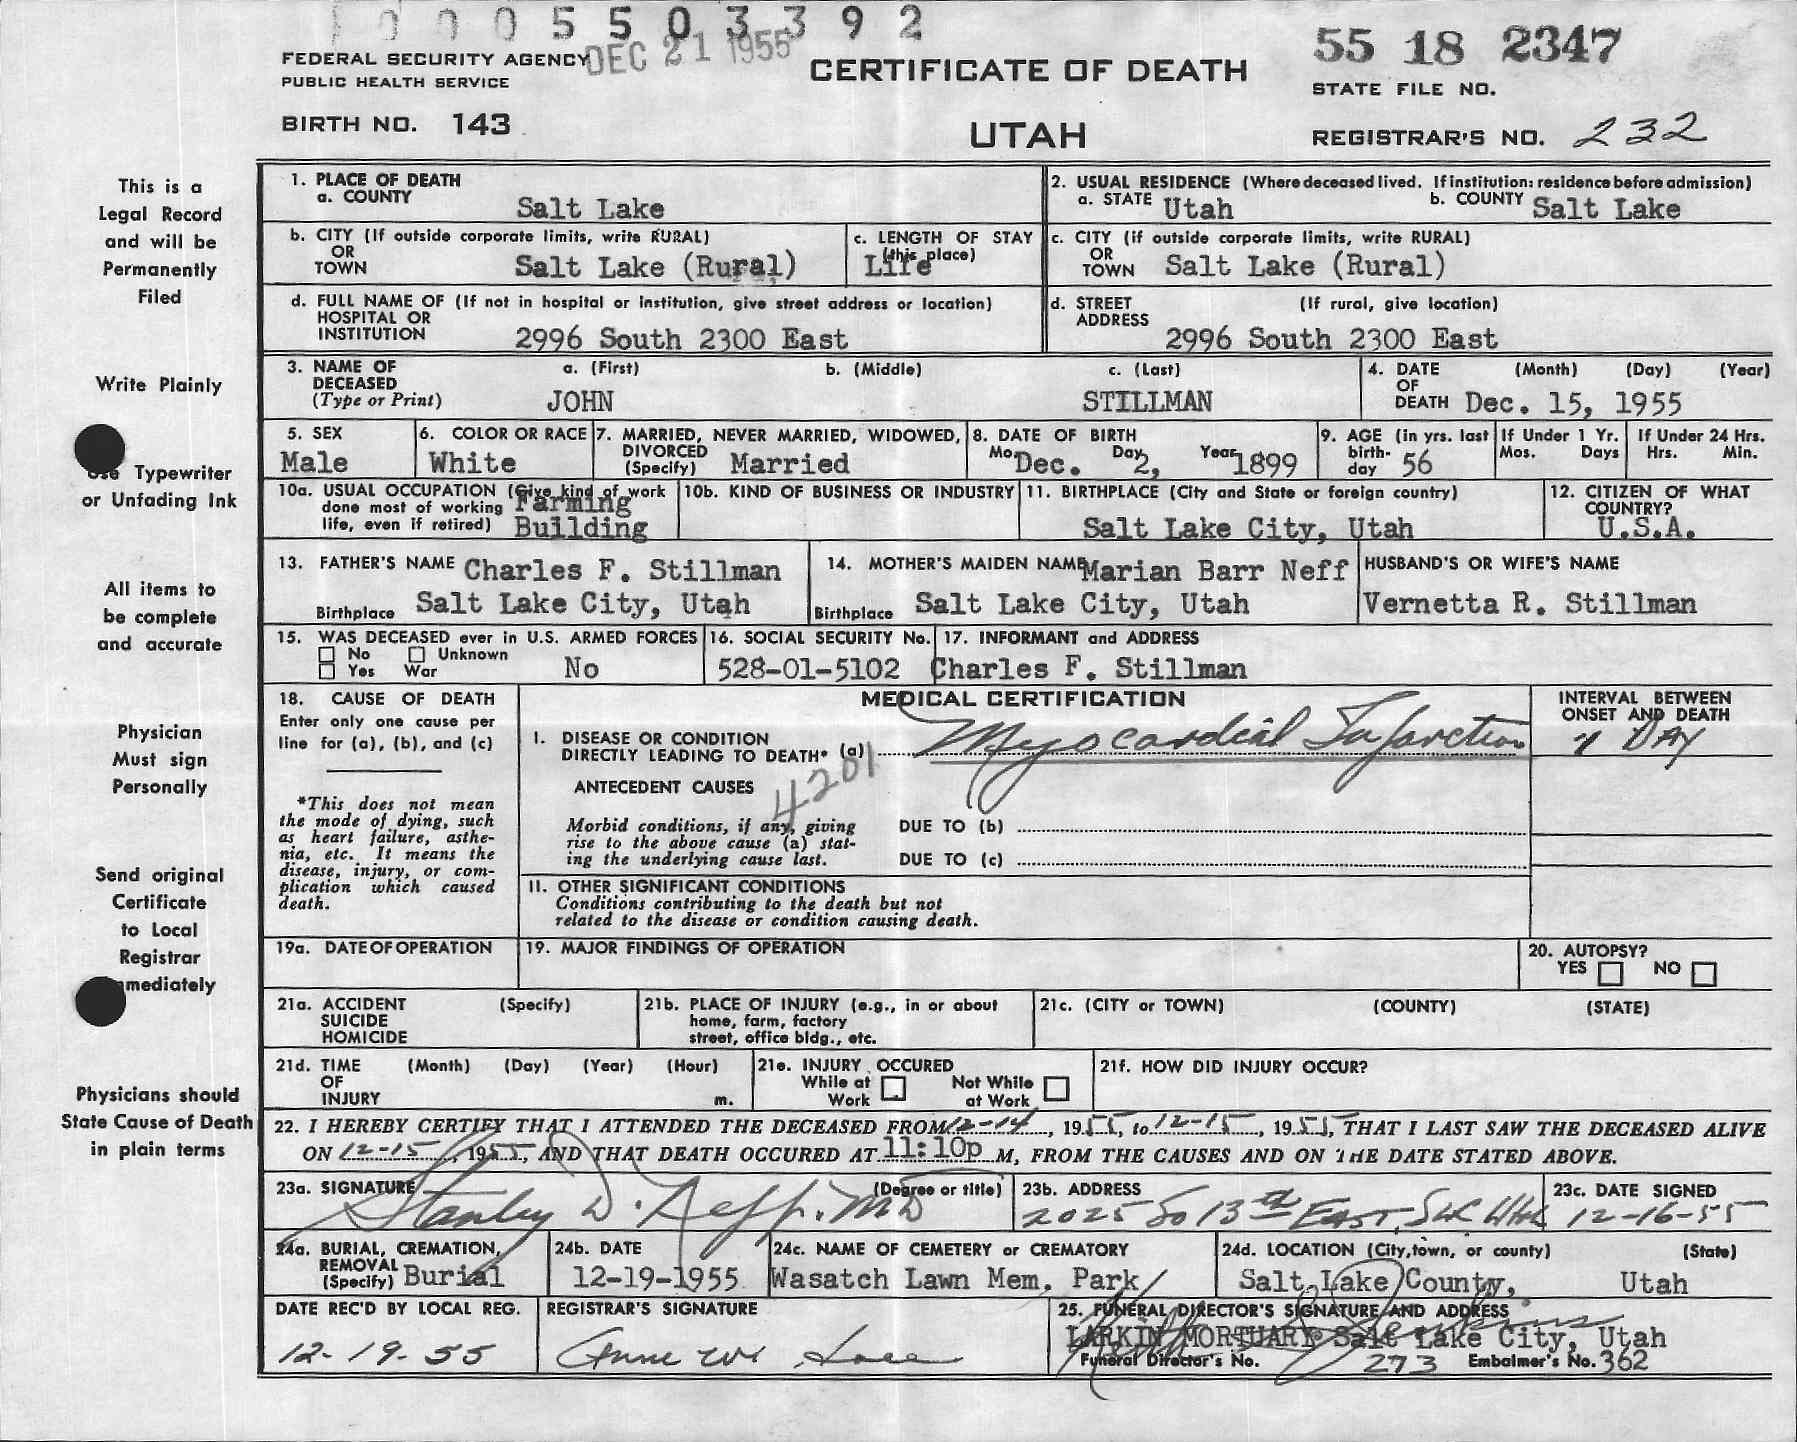 0 0 0 5 5 0 3 3 9 2
FEDERAL SECURITY AGENCY
PUBLIC HEALTH SERVICE
DEC 21 1955
CERTIFICATE OF DEATH
UTAH
55 18 2347
STATE FILE NO.
BIRTH NO. 143
REGISTRAR'S NO. 232
This is a
Legal Record
and will be
Permanently
Filed
Write Plainly
Use Typewriter
or Unfading Ink
All items to
be complete
and accurate
Physician
Must sign
Personally
Send original
Certificate
to Local
Registrar
mmediately
Physicians should
State Cause of Death
in plain terms
1. PLACE OF DEATH
a. COUNTY Salt Lake
2. USUAL RESIDENCE (Where deceased lived. If institution: residence before admission)
a. STATE Utah b. COUNTY Salt Lake
b. CITY (If outside corporate limits, write RURAL)
OR
TOWN Salt Lake (Rural)
c. LENGTH OF STAY
(this place)
Life
c. CITY (if outside corporate limits, write RURAL)
OR
TOWN Salt Lake (Rural)
d. FULL NAME OF (If not in hospital or institution, give street address or location)
HOSPITAL OR
INSTITUTION 2996 South 2300 East
d. STREET (If rural, give location)
ADDRESS
2996 South 2300 East
3. NAME OF a. (First) b. (Middle) c. (Last)
DECEASED
(Type or Print) JOHN STILLMAN
4. DATE (Month) (Day) (Year)
OF
DEATH Dec. 15, 1955
5. SEX
Male
6. COLOR OR RACE
White
7. MARRIED, NEVER MARRIED, WIDOWED,
DIVORCED
(Specify) Married
8. DATE OF BIRTH
Mo. Dec. Day 2, Year 1899
9. AGE (in yrs. last
birth-
day 56
If Under 1 Yr.
Mos. Days
If Under 24 Hrs.
Hrs. Min.
10a. USUAL OCCUPATION (Give kind of work
done most of working Farming
life, even if retired) Building
10b. KIND OF BUSINESS OR INDUSTRY
11. BIRTHPLACE (City and State or foreign country)
Salt Lake City, Utah
12. CITIZEN OF WHAT
COUNTRY?
U.S.A.
13. FATHER'S NAME Charles F. Stillman
Birthplace Salt Lake City, Utah
14. MOTHER'S MAIDEN NAME Marian Barr Neff
Birthplace Salt Lake City, Utah
HUSBAND'S OR WIFE'S NAME
Vernetta R. Stillman
15. WAS DECEASED ever in U.S. ARMED FORCES
No Unknown
Yes War No
16. SOCIAL SECURITY No.
528-01-5102
17. INFORMANT and ADDRESS
Charles F. Stillman
18. CAUSE OF DEATH
Enter only one cause per
line for (a), (b), and (c)
*This does not mean
the mode of dying, such
as heart failure, asthe-
nia, etc. It means the
disease, injury, or com-
plication which caused
death.
MEDICAL CERTIFICATION
I. DISEASE OR CONDITION
DIRECTLY LEADING TO DEATH* (a) Myocardial Infarction
4201
ANTECEDENT CAUSES
Morbid conditions, if any, giving
rise to the above cause (a) stat-
ing the underlying cause last.
DUE TO (b)
DUE TO (c)
II. OTHER SIGNIFICANT CONDITIONS
Conditions contributing to the death but not
related to the disease or condition causing death.
INTERVAL BETWEEN
ONSET AND DEATH
1 DAY
19a. DATE OF OPERATION
19. MAJOR FINDINGS OF OPERATION
20. AUTOPSY?
YES NO
21a. ACCIDENT (Specify)
SUICIDE
HOMICIDE
21b. PLACE OF INJURY (e.g., in or about
home, farm, factory
street, office bldg., etc.
21c. (CITY or TOWN) (COUNTY) (STATE)
21d. TIME (Month) (Day) (Year) (Hour)
OF
INJURY m.
21e. INJURY OCCURED
While at Not While
Work at Work
21f. HOW DID INJURY OCCUR?
22. I HEREBY CERTIFY THAT I ATTENDED THE DECEASED FROM 12-14, 1955, to 12-15, 1955, THAT I LAST SAW THE DECEASED ALIVE
ON 12-15, 1955, AND THAT DEATH OCCURED AT 11:10p M, FROM THE CAUSES AND ON THE DATE STATED ABOVE.
23a. SIGNATURE (Degree or title)
Stanley D. Neff. MD
23b. ADDRESS
2025 So 13th EAST, SLC Utah
23c. DATE SIGNED
12-16-55
24a. BURIAL, CREMATION,
REMOVAL
(Specify) Burial
24b. DATE
12-19-1955
24c. NAME OF CEMETERY or CREMATORY
Wasatch Lawn Mem. Park
24d. LOCATION (City, town, or county) (State)
Salt Lake County, Utah
DATE REC'D BY LOCAL REG.
12-19-55
REGISTRAR'S SIGNATURE
Anne W.
25. FUNERAL DIRECTOR'S SIGNATURE AND ADDRESS
LARKIN MORTUARY Salt Lake City, Utah
Funeral Director's No. 273 Embalmer's No. 362